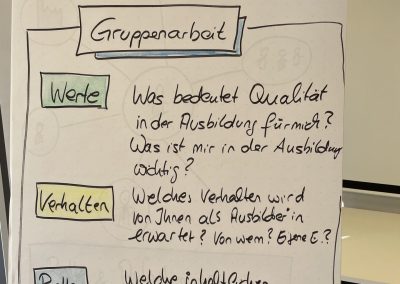 Gruppenarbeit
Werte
Was bedeutet Qualität
in der Ausbildung für mich?
Was ist mir in der Ausbildung
wichtig?
Verhalten
Welches Verhalten wird
von Ihnen als Ausbilder*in
erwartet? Von wem? Eigene E.?
Welche inhaltlichen